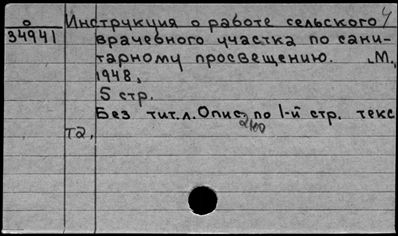 о Инструкция о работе сельского
34941 врачебного участка по сани-
тарному просвещению. М.,
1948.
5 стр.
Без тит.л. Опис. по 1-й стр. текс
та.